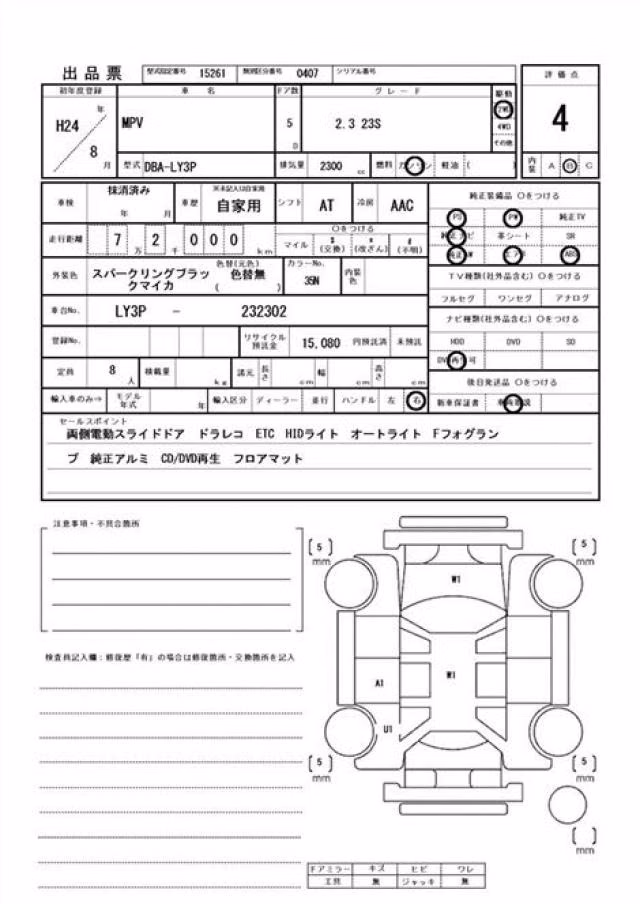 出品票 型式指定番号 15261 類別区分番号 0407 シリアル番号
初年度登録 車名 ドア数 グレード 駆動 評価点
H24 年 8 月 MPV 5 D 2.3 23S 2WD 4WD その他 4
型式 DBA-LY3P 排気量 2300 cc 燃料 ガソリン 軽油 ( ) 内装 A B C
車検 抹消済み 年 月 車歴 ※未記入は自家用 自家用 シフト AT 冷房 AAC
純正装備品 ○をつける
PS PW 純正TV
純正ナビ 革シート SR
純正AW エアB ABS
走行距離 7 万 2 千 0 0 0 km ○をつける マイル $ (交換) * (改ざん) # (不明)
外装色 スパークリングブラックマイカ 色替(元色) 色替無 ( ) カラーNo. 35N 内装色
TV種類(社外品含む) ○をつける
フルセグ ワンセグ アナログ
車台No. LY3P - 232302
ナビ種類(社外品含む) ○をつける
HDD DVD SD
DVD再生可
登録No. リサイクル預託金 15,080 円預託済 未預託
定員 8 人 積載量 kg 諸元 長さ cm 幅 cm 高さ cm
後日発送品 ○をつける
新車保証書 車両取説
輸入車のみ⇒ モデル年式 年 輸入区分 ディーラー 並行 ハンドル 左 右
セールスポイント
両側電動スライドドア ドラレコ ETC HIDライト オートライト Fフォグラン
プ 純正アルミ CD/DVD再生 フロアマット
注意事項・不具合箇所
[5] mm
[5] mm
W1
検査員記入欄：修復歴「有」の場合は修復箇所・交換箇所を記入
A1
W1
U1
[5] mm
[5] mm
[ ] mm
ドアミラー キズ ヒビ ワレ
工具 無 ジャッキ 無